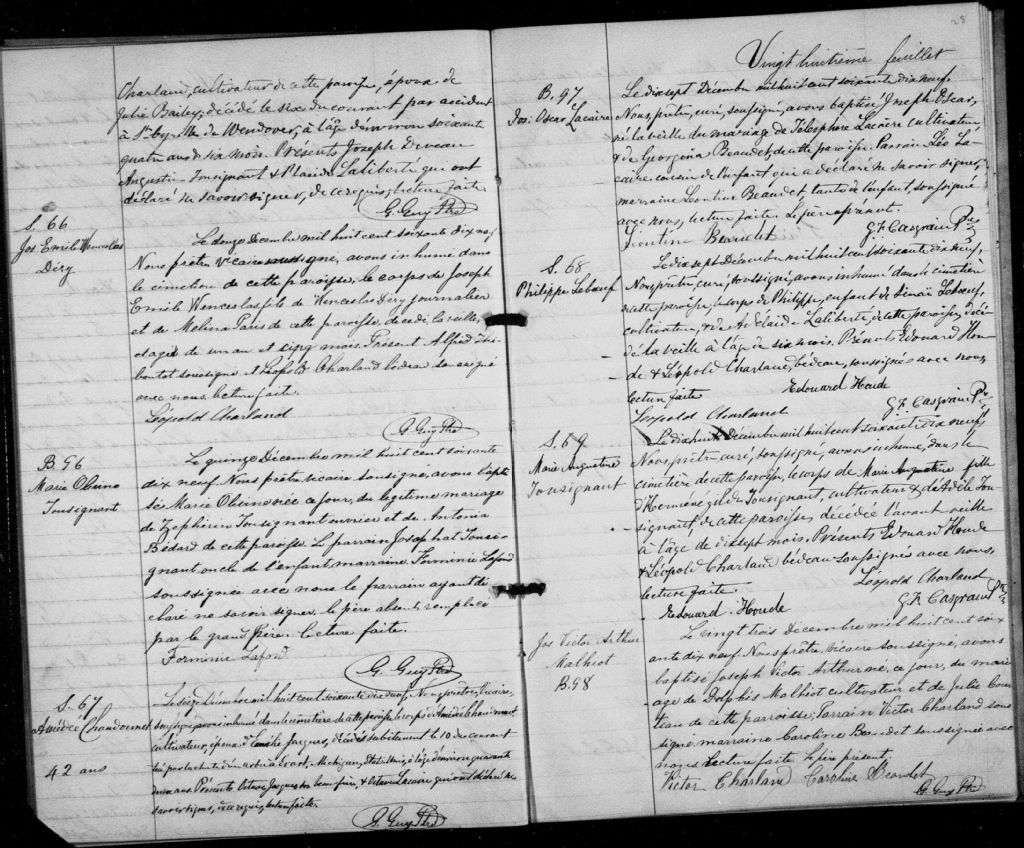 Charland, cultivateur de cette paroisse, époux de
Julie Bailey, décédé le six du courant par accident
à St Cyrille de Wendover, à l'âge d'environ soixante
quatre ans et six mois. Présents Joseph
Augustin Tousignant & Placide Laliberté qui ont
déclaré ne savoir signer, de ce requis, lecture faite
G. Guy Ptre
S. 66
Jos Emile Wenceslas
Déry
Le douze Décembre mil huit cent soixante dix neuf
Nous prêtre vicaire soussigné, avons inhumé dans
le cimetière de cette paroisse, le corps de Joseph
Emile Wenceslas fils de Wenceslas Déry journalier
et de Melina Paris de cette paroisse, décédé la veille,
et agé de un an et cinq mois. Présent Alfred
soussigné & Léopold Charland bedeau soussigné
avec nous. lecture faite.
Léopold Charland
G. Guy Ptre
B. 96
Marie Obina
Tousignant
Le quinze Décembre mil huit cent soixante
dix neuf. Nous prêtre vicaire soussigné, avons bapti
sée Marie Obina née ce jour, du légitime mariage
de Zephirin Tousignant ouvrier et de Antonia
Bedard de cette paroisse. Le parrain Josaphat Tousi-
gnant oncle de l'enfant marraine Forminie Lafond
soussignée avec nous le parrain ayant dé
claré ne savoir signer. le père absent remplacé
par le grand Père. lecture faite.
Forminie Lafond
G. Guy Ptre
S. 67
Amédée Chandonnet
42 ans
Le seize Décembre mil huit cent soixante dix neuf, Nous prêtre, Vicaire
soussigné, avons inhumé dans le cimetière de cette paroisse le corps d'Amédée Chandonnet
cultivateur, époux d'Emilie Jacques, décédé subitement le 10 du courant
tué par la chute d'un arbre à Michigan, Etats Unis, à l'âge d'environ quarante
deux ans. Présents Octave Jacques beau frère, & Octave Lacaire qui ont déclaré ne
savoir signer, de ce requis, lecture faite.
G. Guy Ptre
28
Vingt huitième feuillet
B. 97
Jos. Oscar Lacaire
Le dix sept Décembre mil huit cent soixante dix neuf,
Nous prêtre, curé, soussigné, avons baptisé Joseph Oscar,
né la veille du mariage de Télesphore Lacaire cultivateur
& de Georgina Beaudet de cette paroisse. Parrain Léo La-
caire cousin de l'enfant qui a déclaré ne savoir signer
marraine Léontine Beaudet tante de l'enfant, soussignée
avec nous, lecture faite. Le père présent.
Léontine Beaudet
G.F. Casgrain Ptre
S. 68
Philippe Leboeuf
Le dix sept Décembre mil huit cent soixante dix neuf,
Nous prêtre, curé, soussigné, avons inhumé dans le cimetière
de cette paroisse, le corps de Philippe, enfant de Sinaï Leboeuf,
cultivateur, & de Adélaïde Laliberté, de cette paroisse, décé-
dé la veille à l'âge de six mois. Présents Edouard Hou-
de & Léopold Charland, bedeau, soussignés avec nous
lecture faite
Edouard Houde
Léopold Charland
G.F. Casgrain Ptre
S. 69
Marie Augustine
Tousignant
Le dix huit Décembre mil huit cent soixante dix neuf,
Nous prêtre curé, soussigné, avons inhumé, dans le
cimetière de cette paroisse, le corps de Marie Augustine fille
d'Herménégilde Tousignant, cultivateur & de Adèle Tou-
signant, de cette paroisse, décédée l'avant veille
à l'âge de dix sept mois. Présents Edouard Houde
& Léopold Charland bédeau soussignés avec nous,
lecture faite
Léopold Charland
Edouard Houde
G.F. Casgrain Ptre
Jos Victor Arthur
Malhiot
B. 98
Le vingt trois Décembre mil huit cent soix
ante dix neuf. Nous prêtre, vicaire soussigné, avons
baptisé Joseph Victor Arthur né, ce jour, du mari
age de Dolphis Malhiot cultivateur et de Julie
de cette parroisse. Parrain Victor Charland sous
signé. marraine Caroline Beaudet soussignée avec
nous Lecture faite Le père présent
Victor Charland Caroline Beaudet
G. Guy Ptre